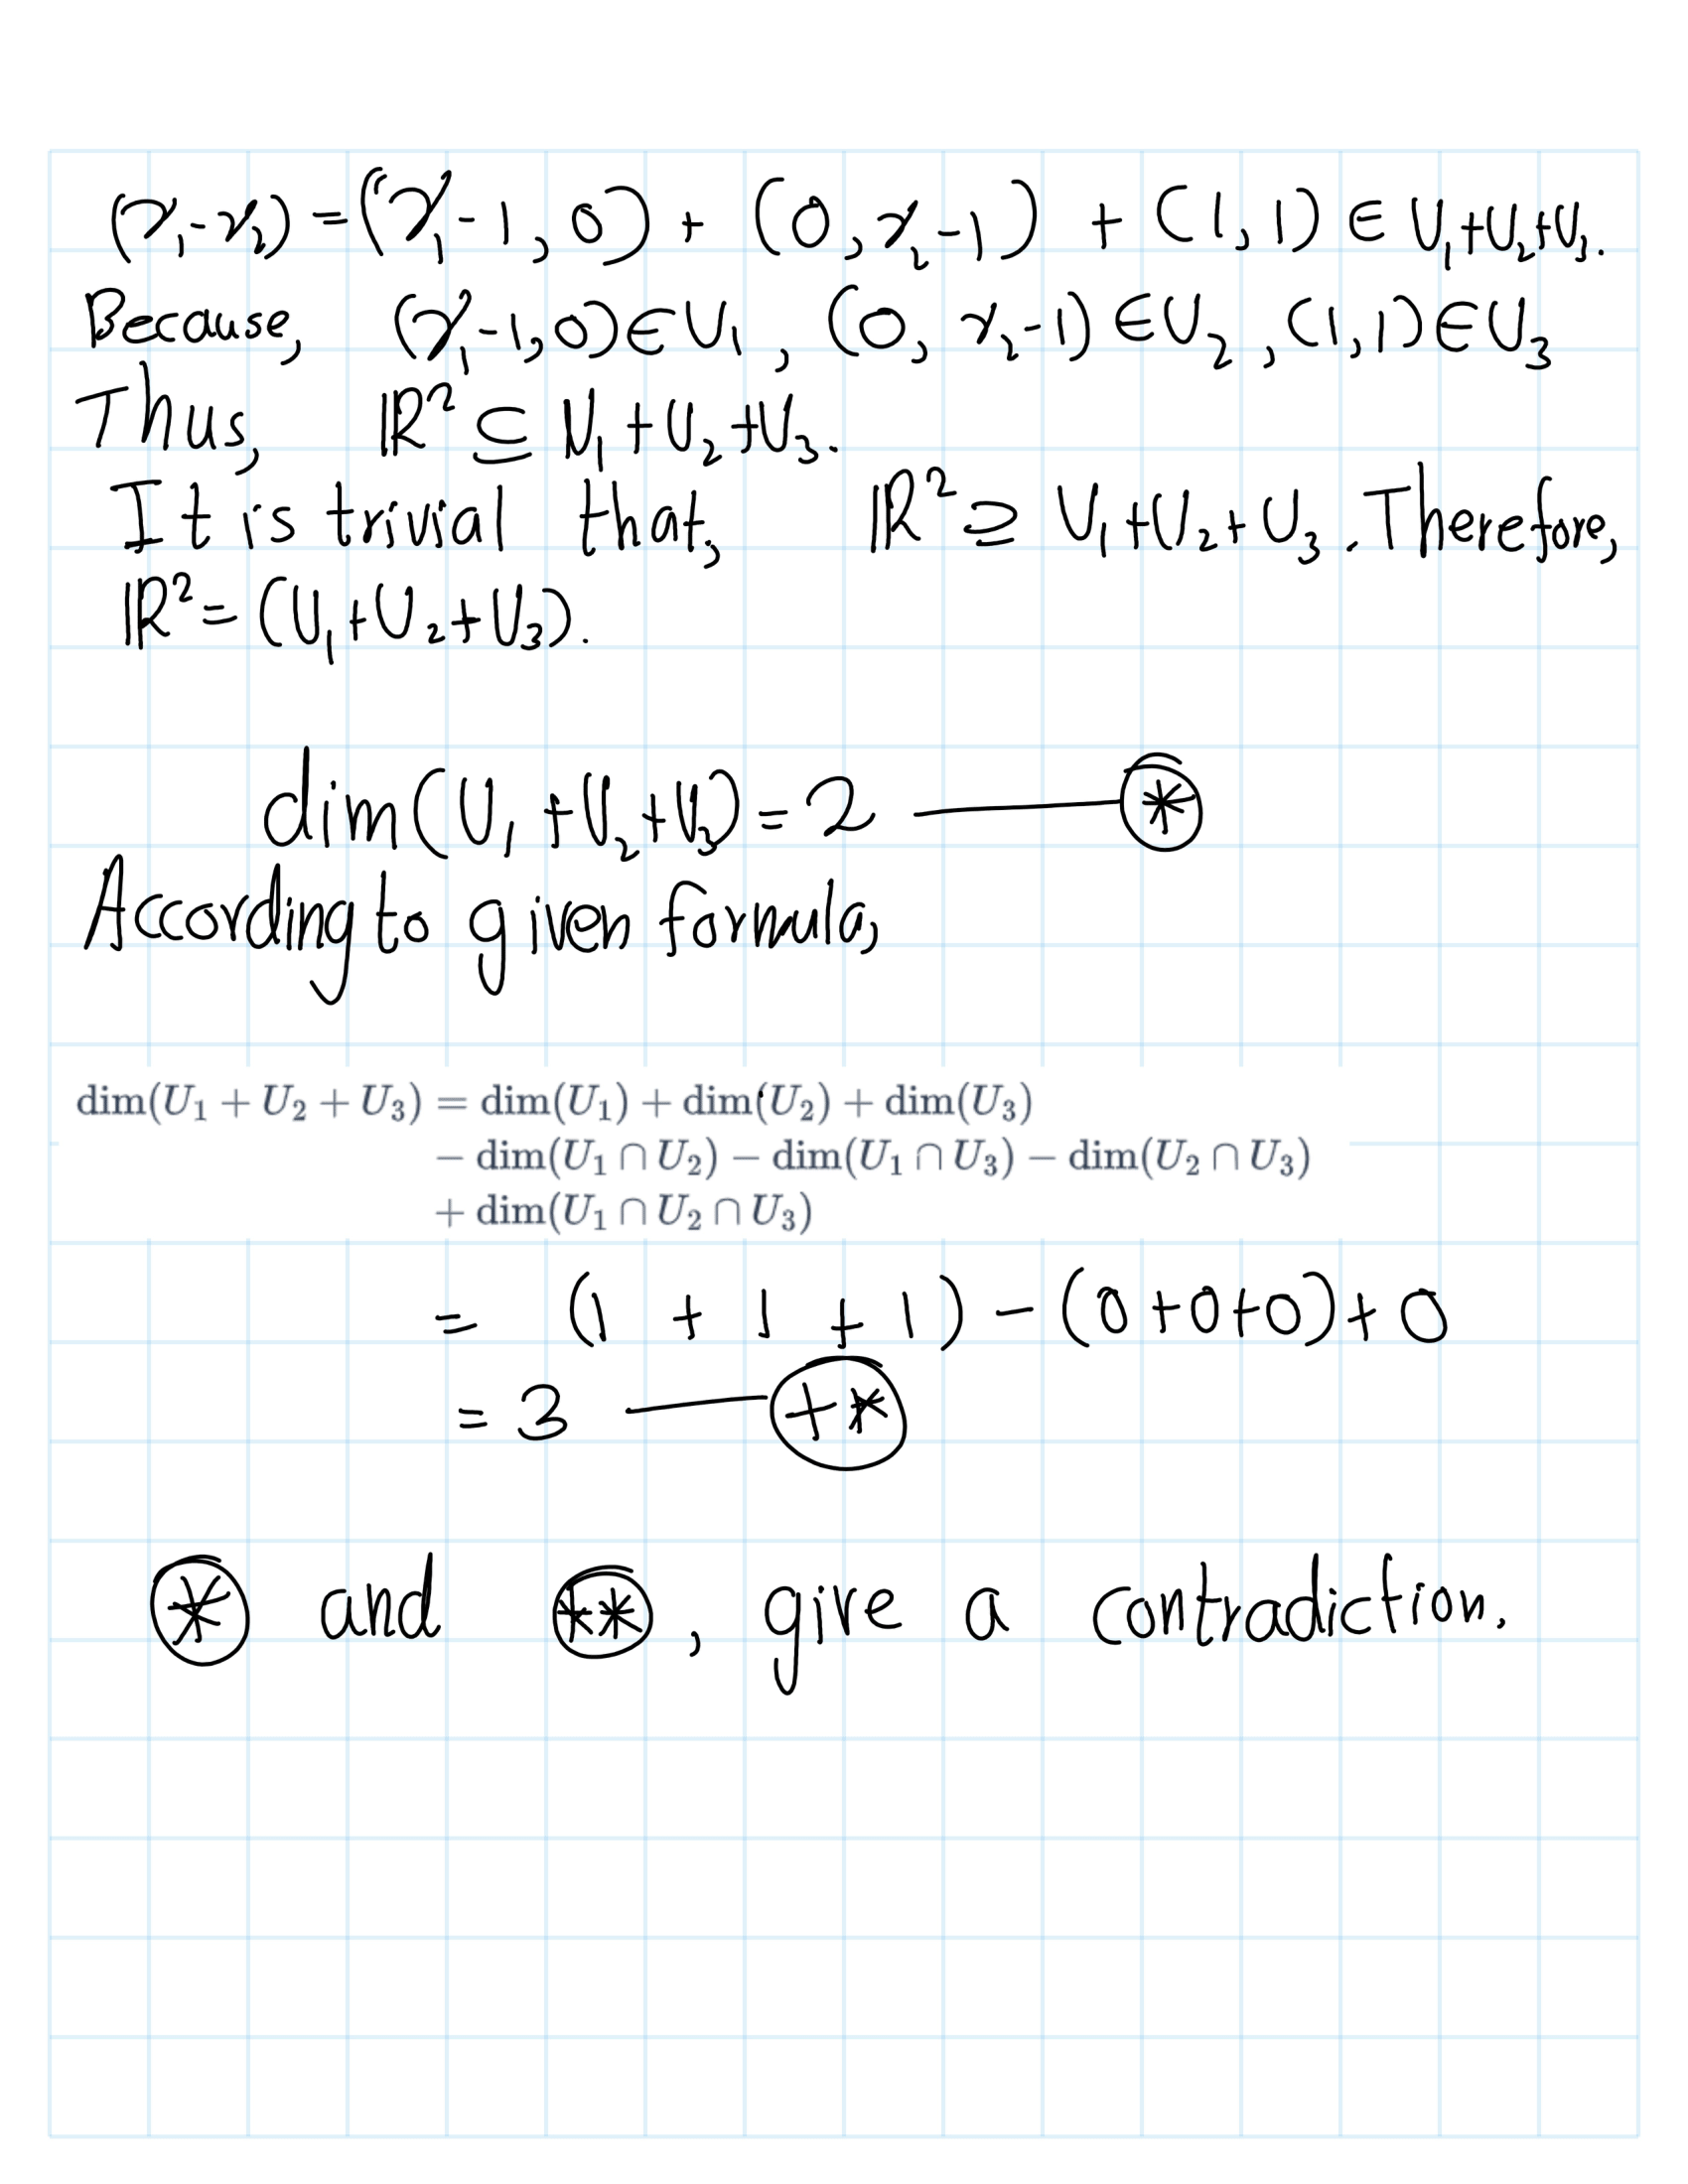 (x₁-x₂) = (x₁-1, 0) + (0, x₂-1) + (1, 1) ∈ U₁+U₂+U₃.
Because, (x₁-1, 0) ∈ U₁, (0, x₂-1) ∈ U₂, (1, 1) ∈ U₃
Thus, ℝ² ⊆ U₁+U₂+U₃.
It is trivial that, ℝ² ⊇ U₁+U₂+U₃. Therefore,
ℝ² = (U₁+U₂+U₃).
dim(U₁+U₂+U₃) = 2 — ⊛
According to given formula,
dim(U₁ + U₂ + U₃) = dim(U₁) + dim(U₂) + dim(U₃)
− dim(U₁ ∩ U₂) − dim(U₁ ∩ U₃) − dim(U₂ ∩ U₃)
+ dim(U₁ ∩ U₂ ∩ U₃)
= (1 + 1 + 1) − (0+0+0) + 0
= 3 — (+*)
⊛ and (**), give a contradiction.